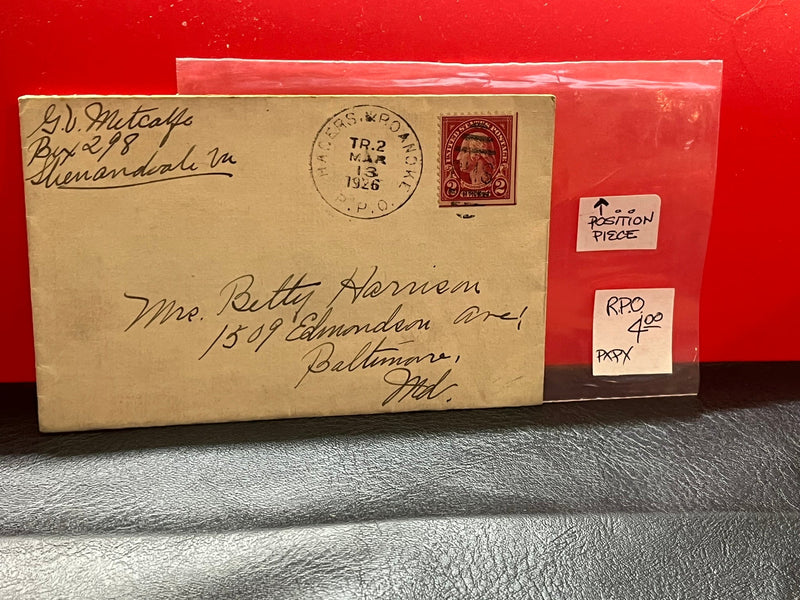 G.V. Metcalfe
Box 298
Shenandoah Va
HAGERS. & ROANOKE
TR.2
MAR
13
1926
R.P.O.
UNITED STATES POSTAGE
2 2
Mrs. Betty Harrison
1509 Edmondson Ave,
Baltimore,
Md.
POSITION
PIECE
R.P.O.
4.00
PXPX